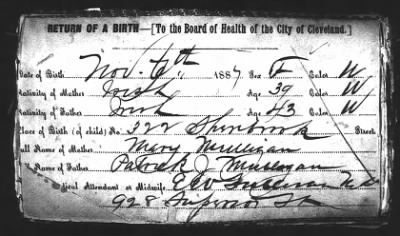 RETURN OF A BIRTH—[To the Board of Health of the City of Cleveland.]
Date of Birth Nov. 6th 1887 Sex F Color W
Nativity of Mother Irish Age 39 Color W
Nativity of Father Irish Age 43 Color W
Place of Birth (of child) No. 322 Street
Full Name of Mother Mary Mulligan
Full Name of Father Patrick J Mulligan
Medical Attendant or Midwife
928 Superior St